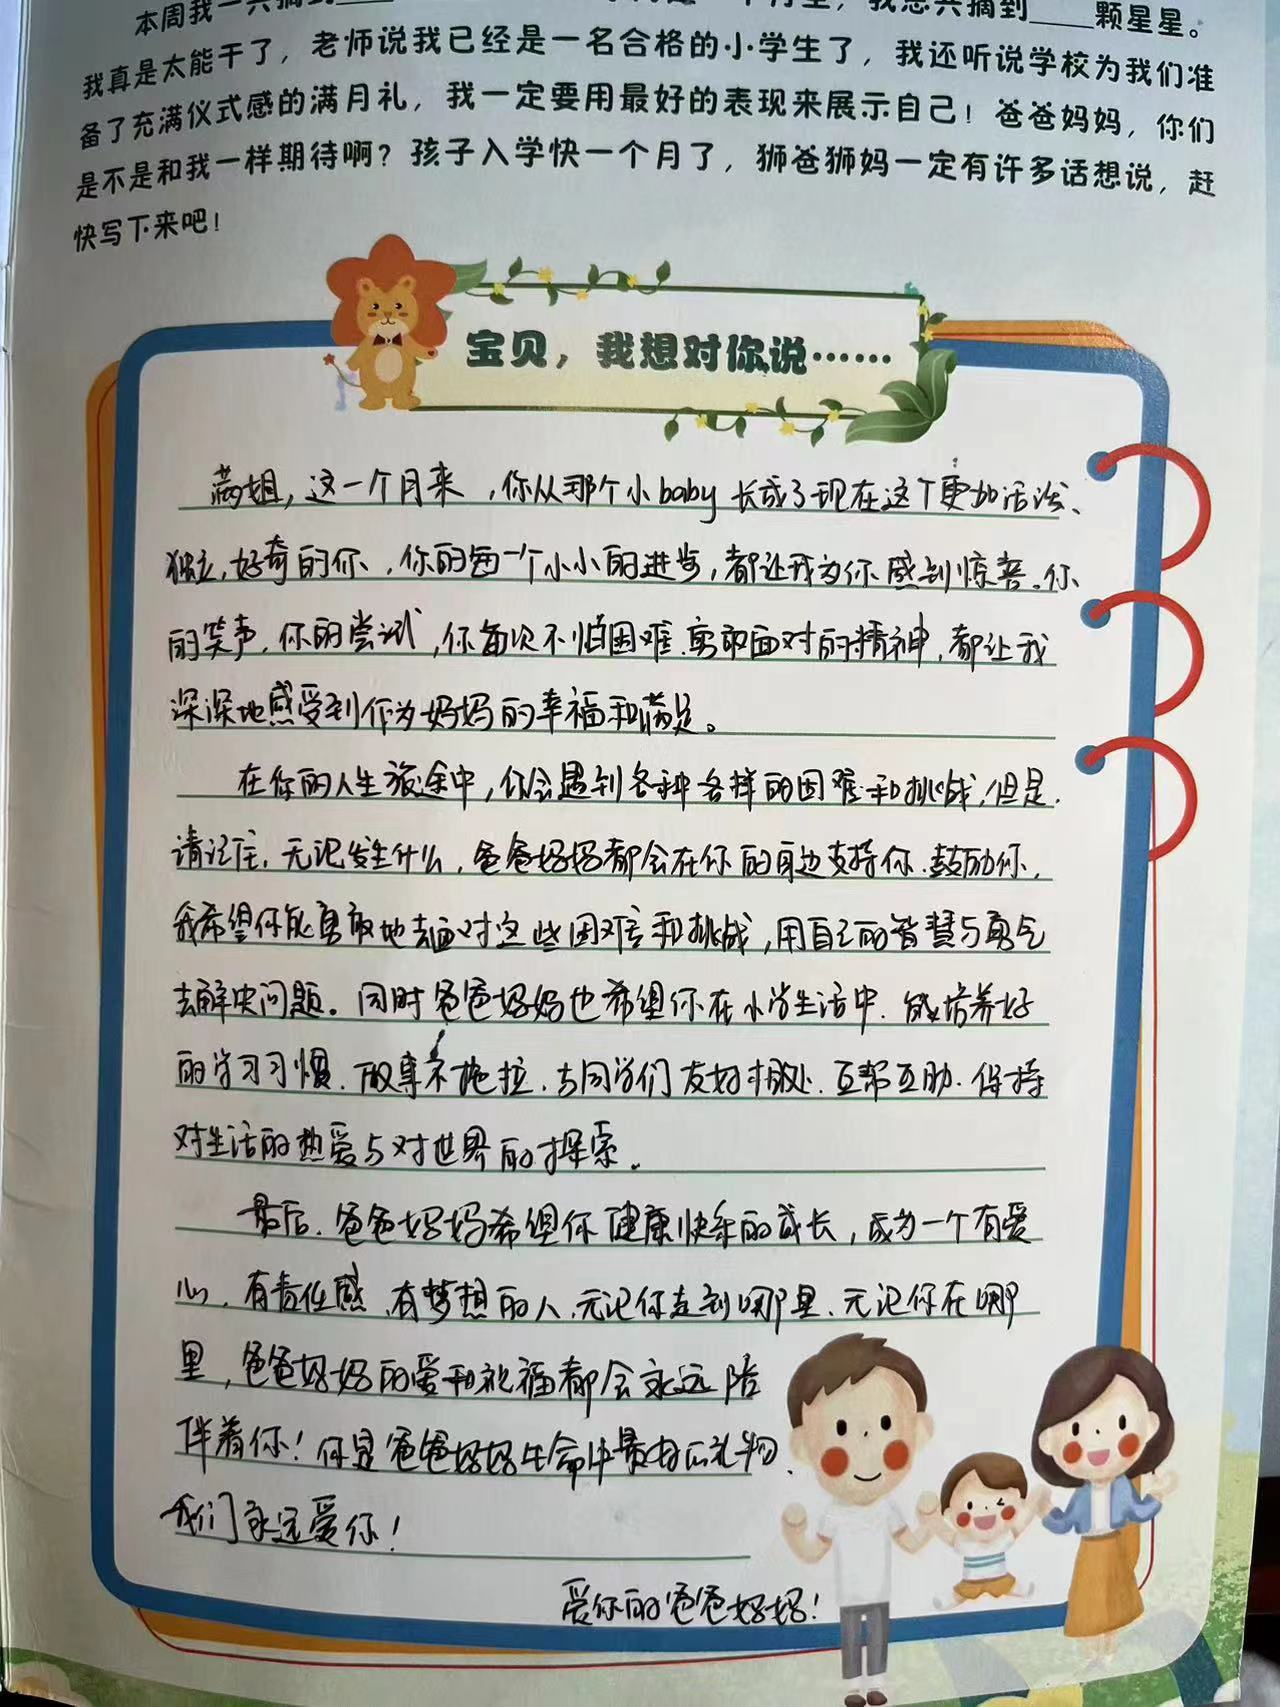 本周我一共摘到____ 我总共摘到____颗星星。
我真是太能干了，老师说我已经是一名合格的小学生了，我还听说学校为我们准
备了充满仪式感的满月礼，我一定要用最好的表现来展示自己！爸爸妈妈，你们
是不是和我一样期待啊？孩子入学快一个月了，狮爸狮妈一定有许多话想说，赶
快写下来吧！
宝贝，我想对你说……
满姐，这一个月来，你从那个小baby长成了现在这个更加活泼、
独立，好奇的你，你的每一个小小的进步，都让我为你感到惊喜。你
的笑声，你的尝试，你每次不怕困难、勇敢面对的精神，都让我
深深地感受到作为妈妈的幸福和满足。
在你的人生旅途中，你会遇到各种各样的困难和挑战，但是，
请记住，无论发生什么，爸爸妈妈都会在你的身边支持你、鼓励你，
我希望你能勇敢地去面对这些困难和挑战，用自己的智慧与勇气
去解决问题。同时爸爸妈妈也希望你在小学生活中，能培养好
的学习习惯、做事不拖拉、与同学们友好相处、互帮互助、保持
对生活的热爱与对世界的探索。
最后，爸爸妈妈希望你健康快乐的成长，成为一个有爱
心、有责任感、有梦想的人，无论你走到哪里、无论你在哪
里，爸爸妈妈的爱和祝福都会永远陪
伴着你！你是爸爸妈妈生命中最好的礼物，
我们永远爱你！
爱你的爸爸妈妈！